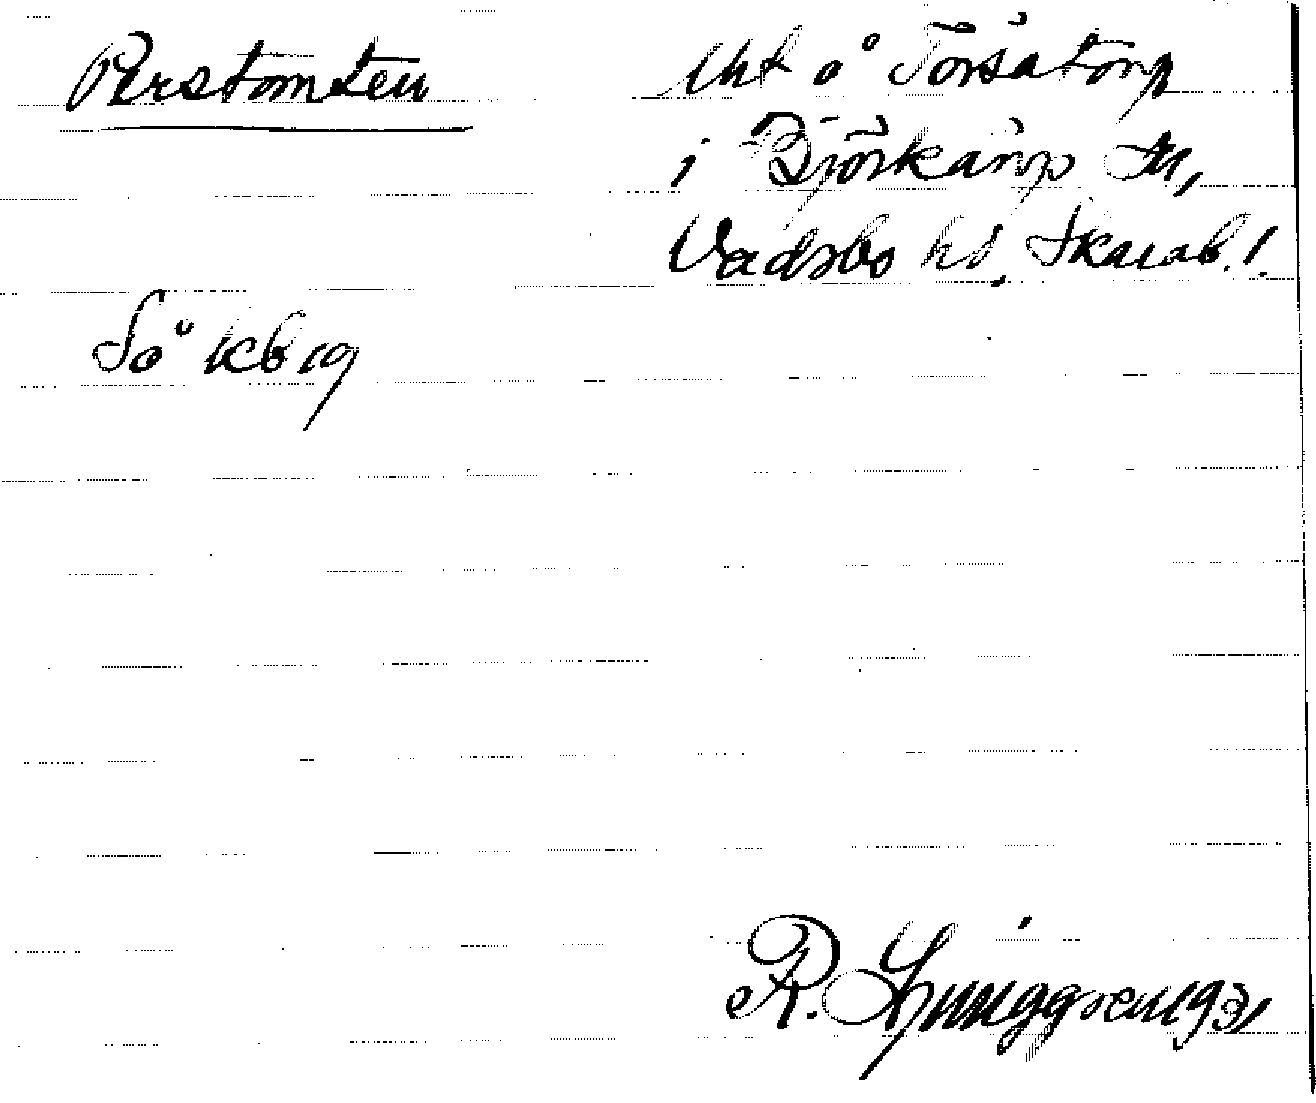 Perstomten
Uht å Torsatorp
i Björkäng sn,
Vadsbo hd. Skarab. l.
Sö kb 19
R. Ljunggren 1931